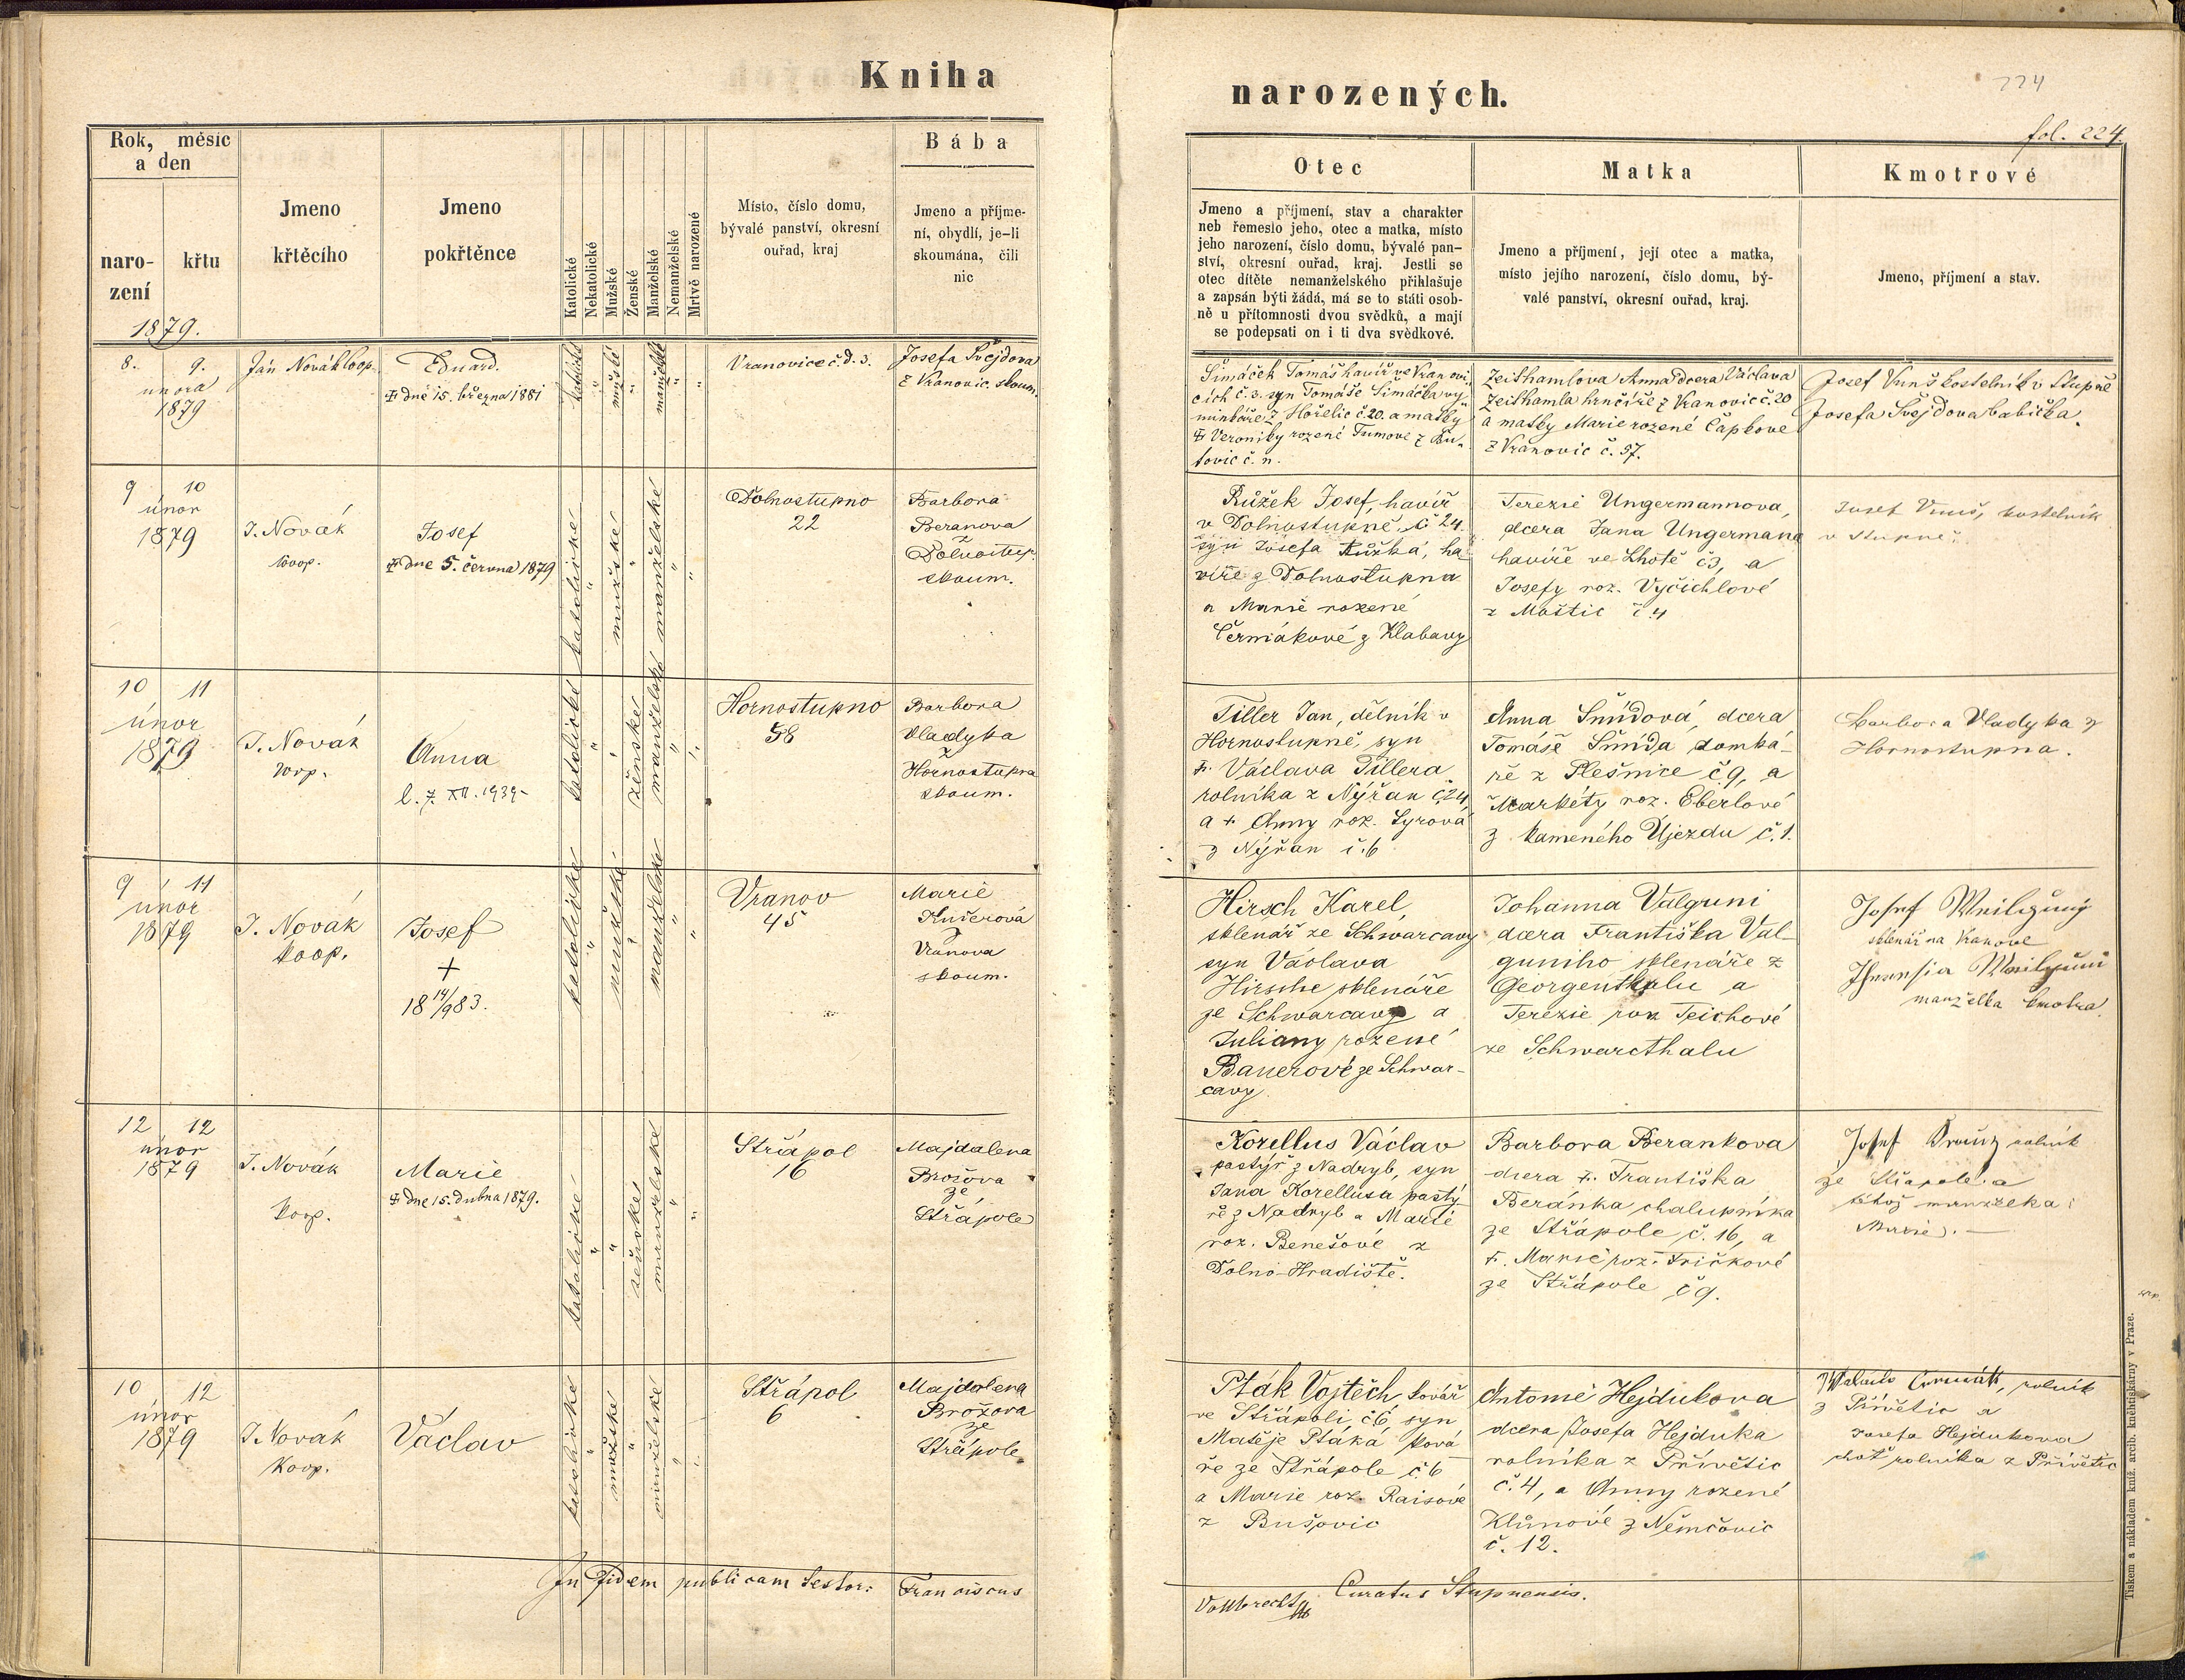 Kniha
narozených.
224
fol. 224.
Rok, měsíc
a den
naro-
zení
křtu
1879.
Jmeno
křtěcího
Jmeno
pokřtěnce
Katolické
Nekatolické
Mužské
Ženské
Manželské
Nemanželské
Mrtvě narozené
Místo, číslo domu,
bývalé panství, okresní
ouřad, kraj
Bába
Jmeno a příjme-
ní, obydlí, je-li
skoumána, čili
nic
Otec
Jmeno a příjmení, stav a charakter
neb řemeslo jeho, otec a matka, místo
jeho narození, číslo domu, bývalé pan-
ství, okresní ouřad, kraj. Jestli se
otec dítěte nemanželského přihlašuje
a zapsán býti žádá, má se to státi osob-
ně u přítomnosti dvou svědků, a mají
se podepsati on i ti dva svědkové.
Matka
Jmeno a příjmení, její otec a matka,
místo jejího narození, číslo domu, bý-
valé panství, okresní ouřad, kraj.
Kmotrové
Jmeno, příjmení a stav.
8. 9.
února
1879
Ján Novák koop.
Eduard.
dne 15. března 1881
katolické
mužské
manželské
Vranovice č.d. 3.
Josefa Švejdova
z Vranovic. skoum.
Šimáček Tomáš havíř ve Vranovi-
cích č. 3. syn Tomáše Šimáčka vý-
minkáře z Hořelic č. 20. a matky
Veroniky rozené Tumové z Bu-
tovic č. n.
Zeithamlova Anna dcera Václava
Zeithamla hrnčíře z Vranovic č. 20
a matky Marie rozené Čapkove
z Vranovic č. 57.
Josef Vunš kostelník v Stupně
Josefa Švejdova babička.
9 10
únor
1879
J. Novák
koop.
Josef
dne 5. června 1879
katolické
mužské
manželské
Dolnostupno
22
Barbora
Beranova
z
Dolnostup.
skoum.
Růžek Josef, havíř
v Dolnostupně, č 24.
syn Josefa Růžka, ha-
víře z Dolnostupna
a Marie rozené
Čermákové z Klabavy
Terezie Ungermannova,
dcera Jana Ungermana
havíře ve Lhotě č3, a
Josefy roz. Vyčichlové
z Moštic č. 4
Josef Vunš, kostelník
v Stupně.
10 11
únor
1879
J. Novák
koop.
Anna
l. 7. XII. 1939
katolické
ženské
manželské
Hornostupno
58
Barbora
Vladyka
z
Hornostupna
skoum.
Tiller Jan, dělník v
Hornostupně, syn
Václava Tillera
rolníka z Nýřan č.24,
a Anny roz. Syrová
z Nýřan č.6
Anna Šmídová, dcera
Tomáše Šmída domká-
ře z Plešnice č9, a
Markéty roz. Eberlové
z kameného Újezdu č.1.
Barbora Vladyka z
Hornostupna.
9 11
únor
1879
J. Novák
koop.
Josef
+
18 14/9 83.
katolické
mužské
manželské
Vranov
45
Marie
Kučerová
z
Vranova
skoum.
Hirsch Karel,
sklenář ze Schwarcavy
syn Václava
Hirsche sklenáře
ze Schwarcavy a
Juliany rozené
Bauerové ze Schwar-
cavy
Johanna Valguni
dcera Františka Val-
guniho sklenáře z
Georgenthalu a
Terezie roz Teichové
ze Schwarcthalu
Josef
sklenář na Vranově
manželka kmotra.
12 12
únor
1879
J. Novák
koop.
Marie
dne 15. dubna 1879.
katolické
ženské
manželské
Střápol
16
Majdalena
Brožova
ze
Střápole
Korellus Václav
pastýř z Nadryb, syn
Jana Korellusa pastý-
ře z Nadryb a Marie
roz. Benešové z
Dolno-Hradiště.
Barbora Berankova
dcera Františka
Beránka chalupníka
ze Střápole č. 16, a
Marie roz. Fričkové
ze Střápole č 9.
Josef rolník
ze Střápole a
téhož manželka
Marie. —
10 12
únor
1879
J. Novák
Koop.
Václav
katolické
mužské
manželské
Střápol
6
Majdalena
Brožova
ze
Střápole
Pták Vojtěch kovář
ve Střápoli č6, syn
Matěje Ptáka ková-
ře ze Střápole č 6
a Marie roz. Raisové
z Bušovic
Antonie Hejdukova
dcera Josefa Hejduka
rolníka z Přívětic
č. 4, a Anny rozené
Klůnové z Němčovic
č. 12.
rolník
z Přívětic a
Josefa Hejdukova
choť rolníka z Přívětic
In fidem publicam testor: Franciscus
Vollbrecht Curatus Stupnensis.
Tiskem a nákladem kníž. arcib. knihtiskárny v Praze.